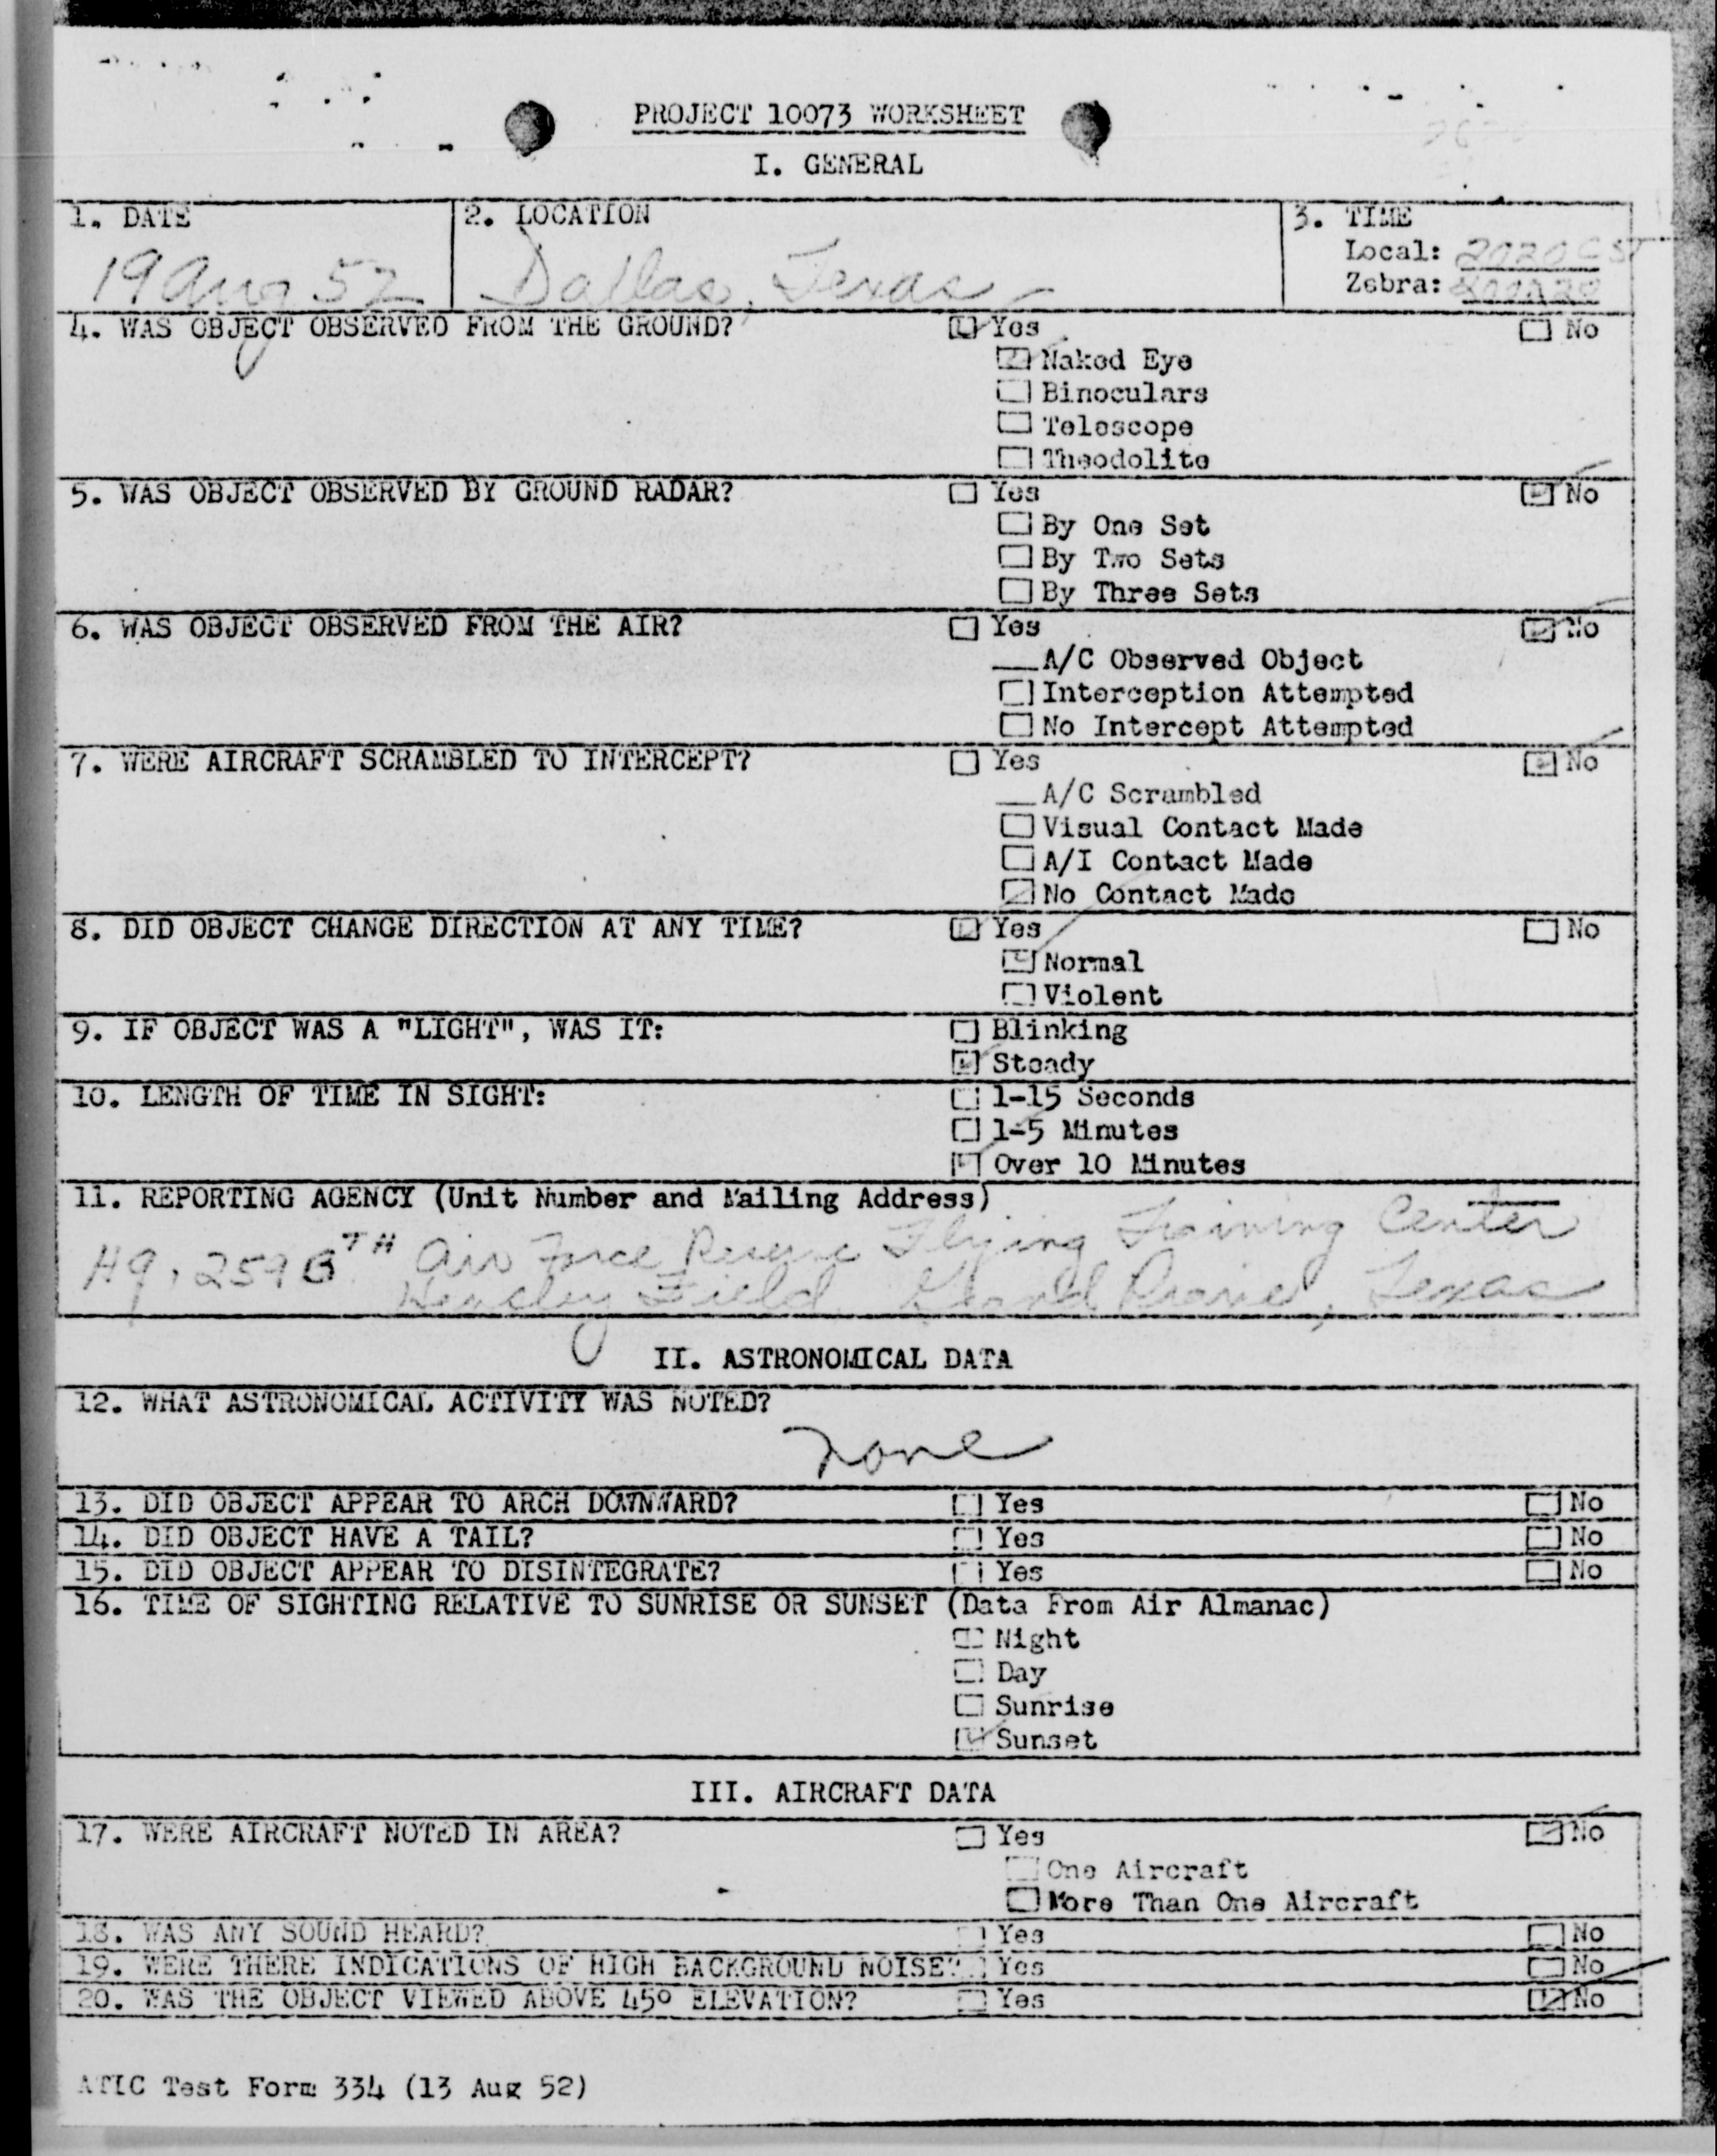 PROJECT 10073 WORKSHEET
I. GENERAL
1. DATE
2. LOCATION
3. TIME
19 Aug 52
Dallas, Texas
Local: 2020 CST
Zebra:
4. WAS OBJECT OBSERVED FROM THE GROUND?
Yes
No
Naked Eye
Binoculars
Telescope
Theodolite
5. WAS OBJECT OBSERVED BY GROUND RADAR?
Yes
No
By One Set
By Two Sets
By Three Sets
6. WAS OBJECT OBSERVED FROM THE AIR?
Yes
No
__A/C Observed Object
Interception Attempted
No Intercept Attempted
7. WERE AIRCRAFT SCRAMBLED TO INTERCEPT?
Yes
No
__A/C Scrambled
Visual Contact Made
A/I Contact Made
No Contact Made
8. DID OBJECT CHANGE DIRECTION AT ANY TIME?
Yes
No
Normal
Violent
9. IF OBJECT WAS A "LIGHT", WAS IT:
Blinking
Steady
10. LENGTH OF TIME IN SIGHT:
1-15 Seconds
1-5 Minutes
Over 10 Minutes
11. REPORTING AGENCY (Unit Number and Mailing Address)
Hq, TH Air Force Reserve Flying Training Center
Hensley Field, Grand Prairie, Texas
II. ASTRONOMICAL DATA
12. WHAT ASTRONOMICAL ACTIVITY WAS NOTED?
None
13. DID OBJECT APPEAR TO ARCH DOWNWARD?
Yes
No
14. DID OBJECT HAVE A TAIL?
Yes
No
15. DID OBJECT APPEAR TO DISINTEGRATE?
Yes
No
16. TIME OF SIGHTING RELATIVE TO SUNRISE OR SUNSET (Data From Air Almanac)
Night
Day
Sunrise
Sunset
III. AIRCRAFT DATA
17. WERE AIRCRAFT NOTED IN AREA?
Yes
No
One Aircraft
More Than One Aircraft
18. WAS ANY SOUND HEARD?
Yes
No
19. WERE THERE INDICATIONS OF HIGH BACKGROUND NOISE?
Yes
No
20. WAS THE OBJECT VIEWED ABOVE 45° ELEVATION?
Yes
No
ATIC Test Form 334 (13 Aug 52)